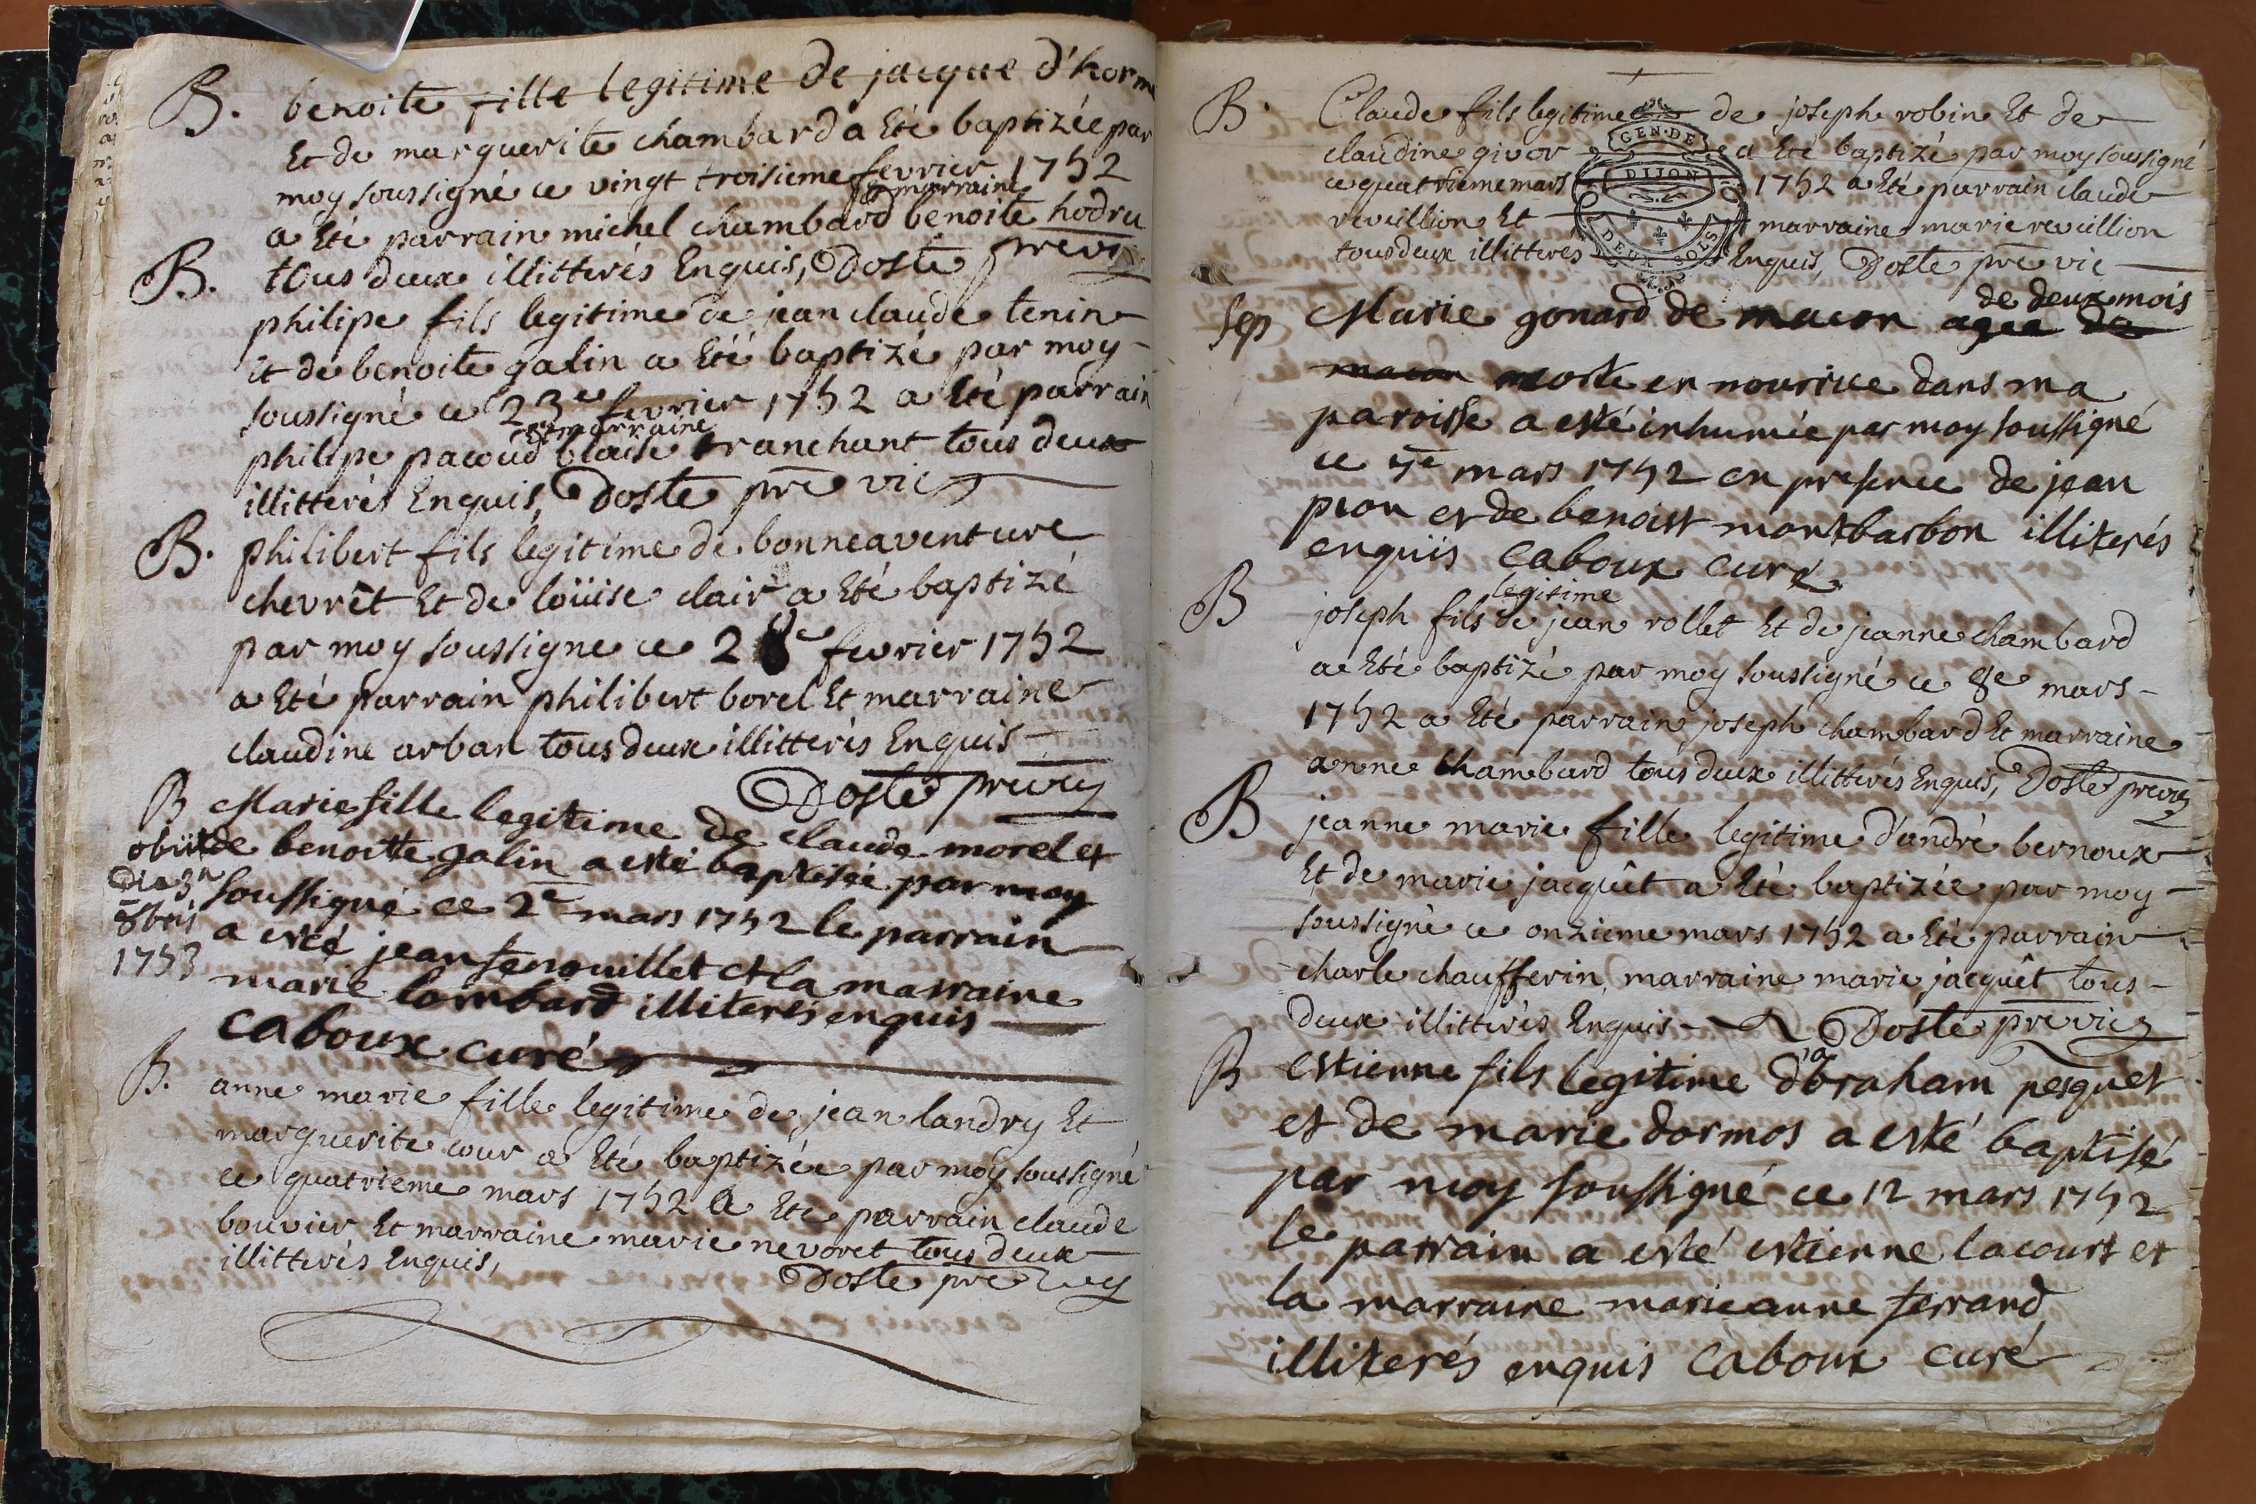 B. benoite fille legitime de jacque d'horme
Et de marguerite chambard a Eté baptizée par
moy soussigné ce vingt troisieme fevrier 1752
et marraine
a Eté parrain michel chambard benoite hodru
tous deux illitterés Enquis, Doste pre vic
B. philipe fils legitime de jean claude tenin
Et de benoite galin a Eté baptizé par moy
soussigné ce 23e fevrier 1752 a Eté parrain
et marraine
philipe pacoud blaise tranchant tous deux
illitterés Enquis, Doste pre vic
B. philibert fils legitime de bonneaventure
chevrêt Et de loüise clair a Eté baptizé
par moy soussigne ce 28e fevrier 1752
a Eté parrain philibert borel Et marraine
claudine arban tous deux illitterés Enquis
Doste pre vic
B Marie fille legitime de claude morel et
obiit de benoitte galin a esté baptisée par moy
Die 3a soussigné ce 2e mars 1752 le parrain
8bris a esté jean fenouillet et la marraine
1753 marie lombard illiterés enquis
caboux curé
B. anne marie fille legitime de jean landry Et
marguerite cour a Eté baptizée par moy soussigné
ce quatrieme mars 1752 a Eté parrain claude
bouvier Et marraine marie nevoret tous deux
illitterés Enquis,
Doste pre vic
B. Claude fils legitime de joseph robin Et de
claudine givor a Eté baptizé par moy soussigné
ce quatrieme mars 1752 a Eté parrain claude
reveillion Et marraine marie reveillion
tous deux illitteres Enquis, Doste pre vic
GEN. DE
DIJON
DEUX SOLS
de deux mois
Sep Marie gonard de macon agée de
macon morte en nourice dans ma
paroisse a esté inhumée par moy soussigné
ce 7e mars 1752 en presence de jean
pion et de benoist montbarbon illiterés
enquis caboux curé
legitime
B joseph fils de jean rollet Et de jeanne chambard
a Eté baptizé par moy soussigné ce 8e mars
1752 a Eté parrain joseph chambard Et marraine
anne chambard tous deux illitterés Enquis, Doste pre vic
B jeanne marie fille legitime d'andré bernoux
Et de marie jacquêt a Eté baptizée par moy
soussigné ce onzieme mars 1752 a Eté parrain
charle chaufferin, marraine marie jacquêt tous
deux illitterés Enquis Doste pre vic
B estienne fils legitime d'abraham pesquet
et de marie dormos a esté baptisé
par moy soussigné ce 12 mars 1752
le parrain a esté estienne lacourt et
la marraine marie anne ferrand
illiterés enquis caboux curé